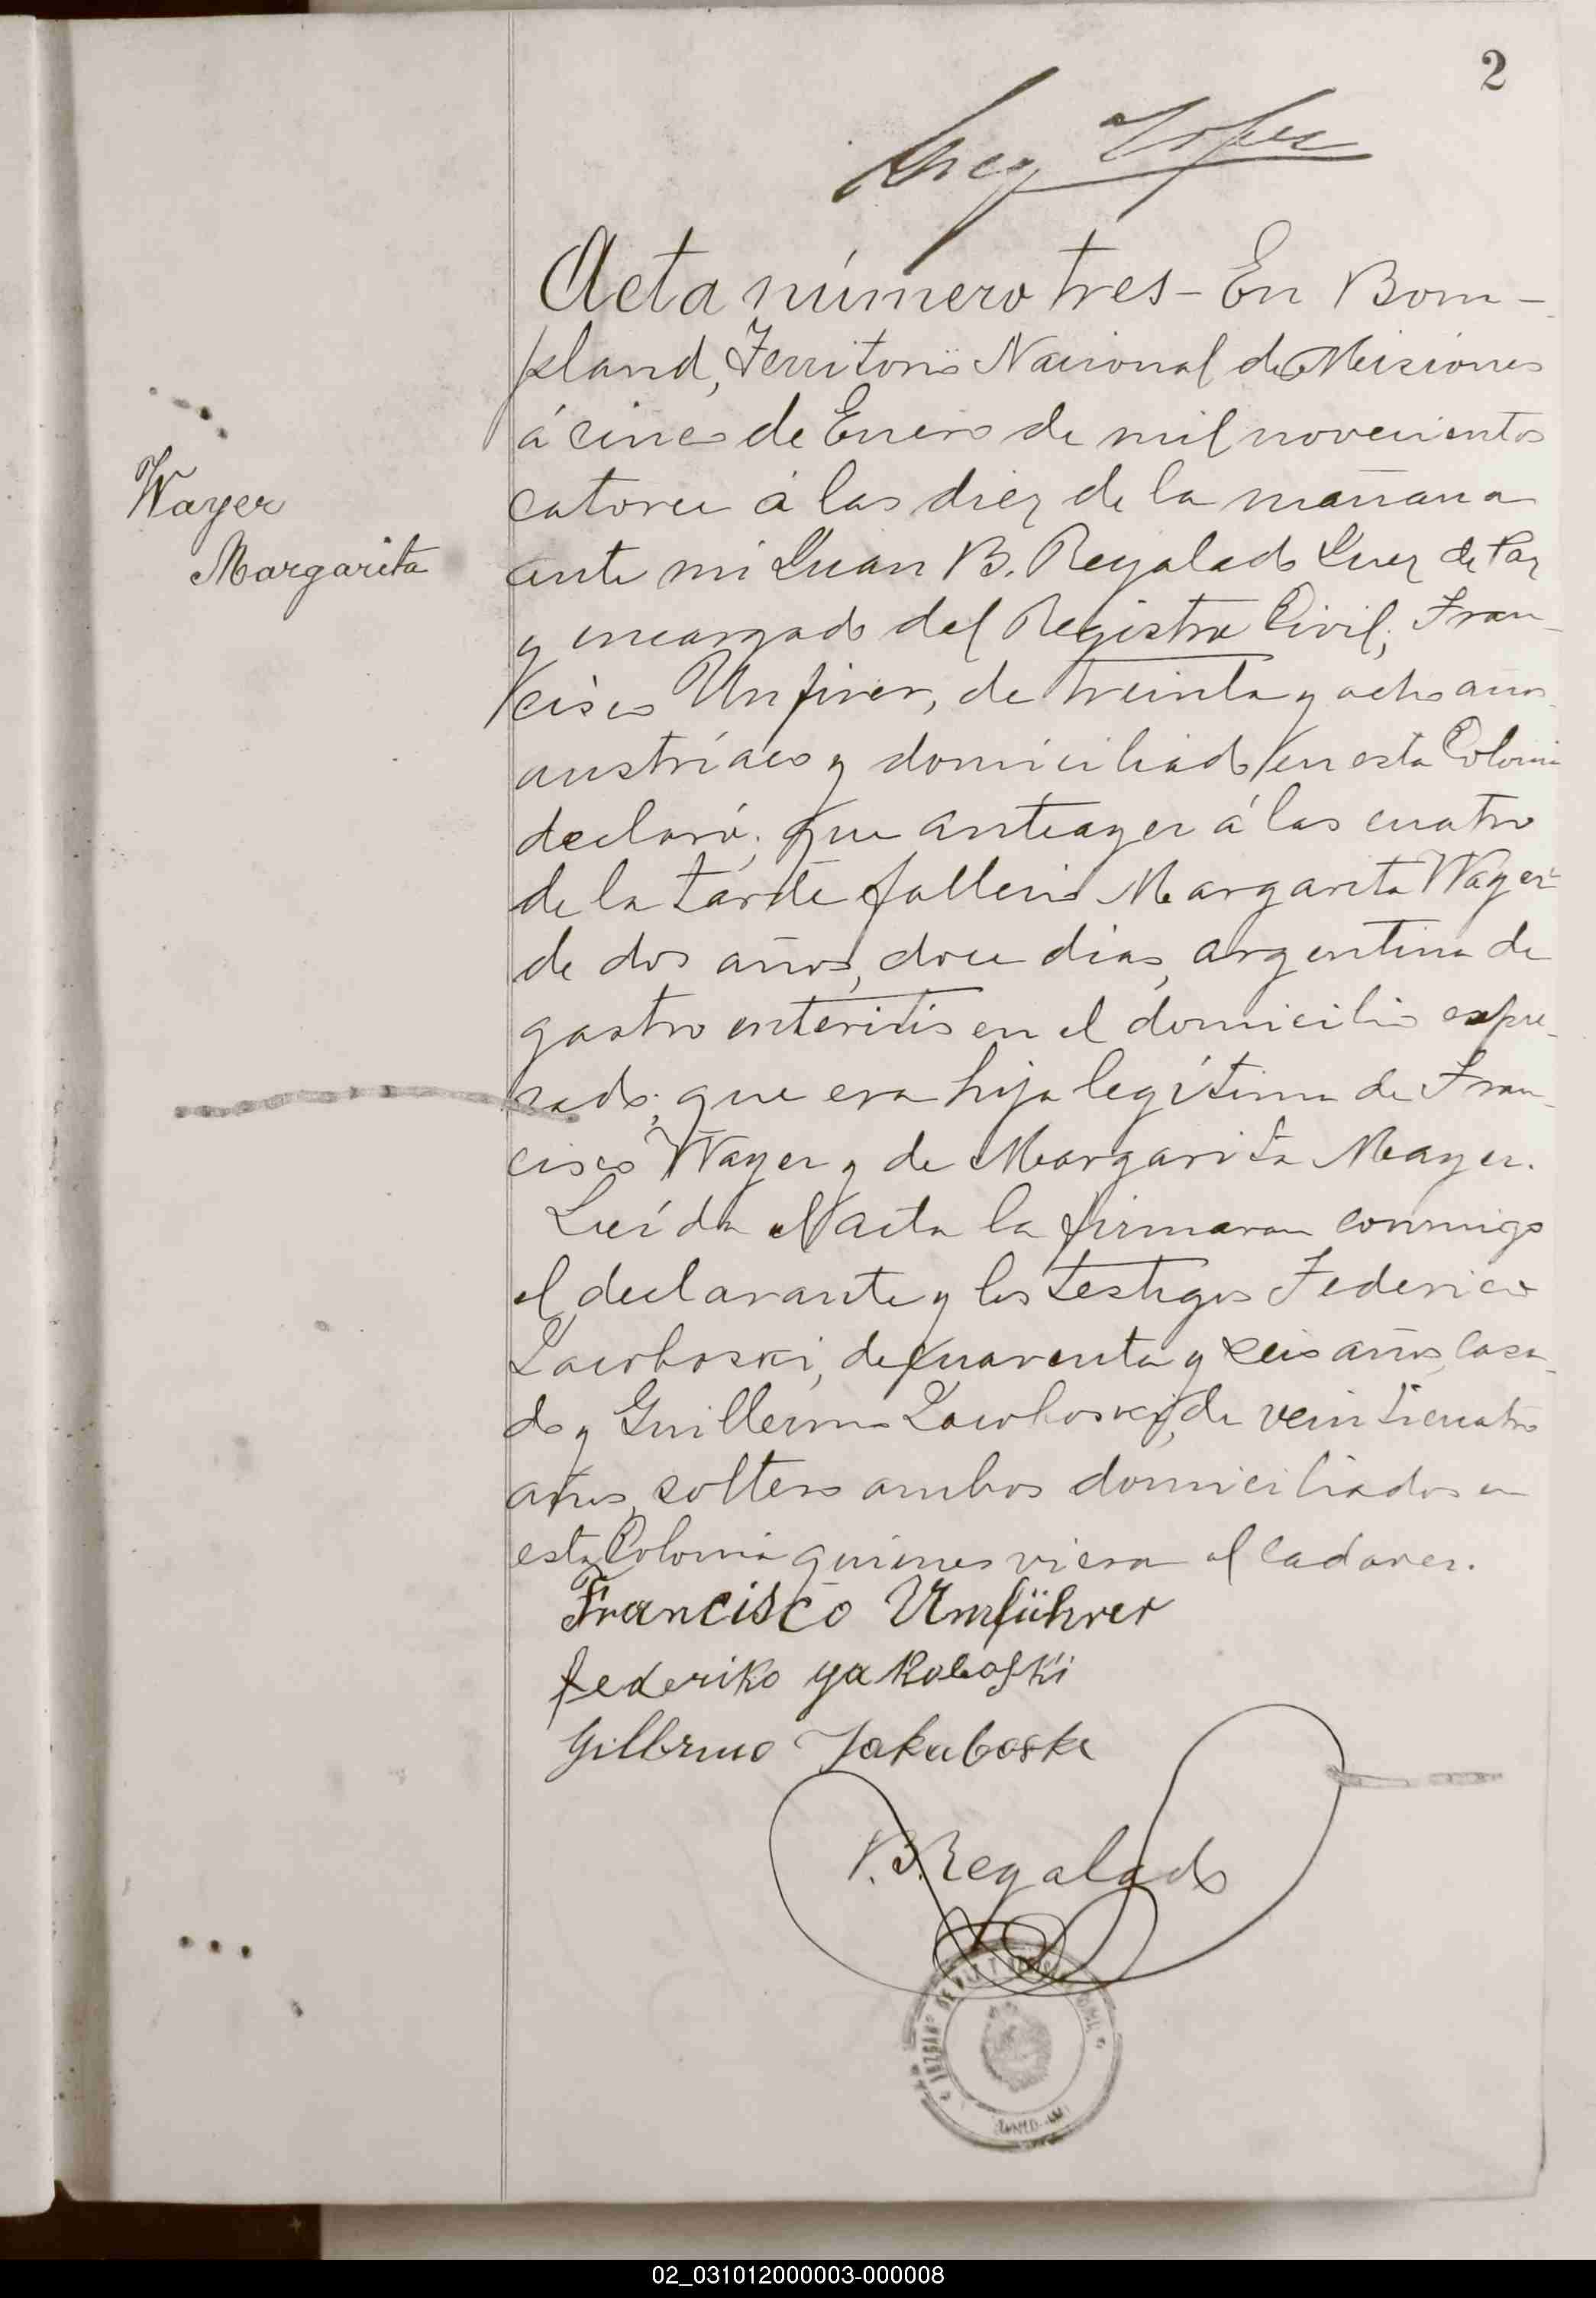 2
Acta número tres - En Bom-
pland, Territorio Nacional de Misiones
á cinco de Enero de mil novecientos
catorce á las diez de la mañana
ante mi Juan B. Regalado Juez de Paz
y encargado del Registro Civil, Fran-
cisco Unfirer, de treinta y ocho años
austríaco y domiciliado en esta Colonia
declaró; que anteayer á las cuatro
de la tarde falleció Margarita Wayer
de dos años, doce dias, argentina de
gastro enteritis en el domicilio expre-
sado; que era hija legítima de Fran-
cisco Wayer y de Margarita Mayer.
Leída el acta la firmaron conmigo
el declarante y los testigos Federico
de cuarenta y seis años, casa-
do y Guillermo de veinticuatro
años, soltero ambos domiciliados en
esta Colonia quienes vieron el cadaver.
Wayer
Margarita
Francisco Umführer
federiko yakoboski
Gillermo Jakuboske
B. Regalado
JUZGADO DE PAZ Y
02_031012000003-000008